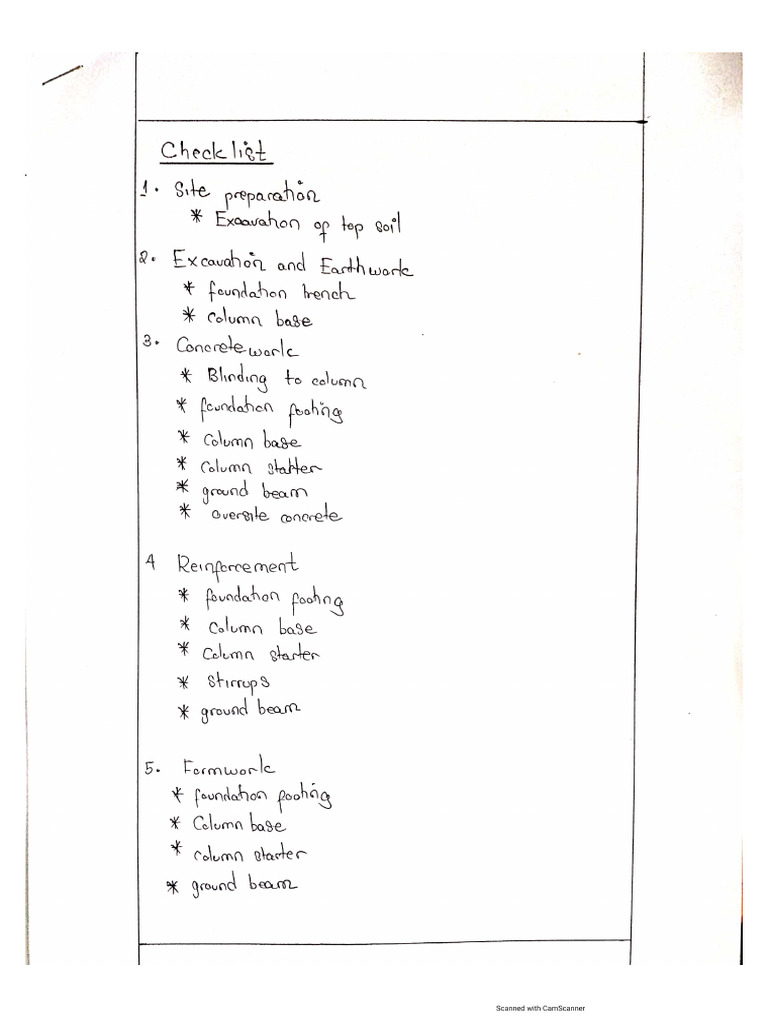 Checklist
1. Site preparation
* Excavation of top soil
2. Excavation and Earthwork
* foundation trench
* column base
3. Concrete work
* Blinding to column
* foundation footing
* column base
* column starter
* ground beam
* oversite concrete
4 Reinforcement
* foundation footing
* column base
* Column starter
* Stirrups
* ground beam
5. Formwork
* foundation footing
* Column base
* column starter
* ground beam
Scanned with CamScanner